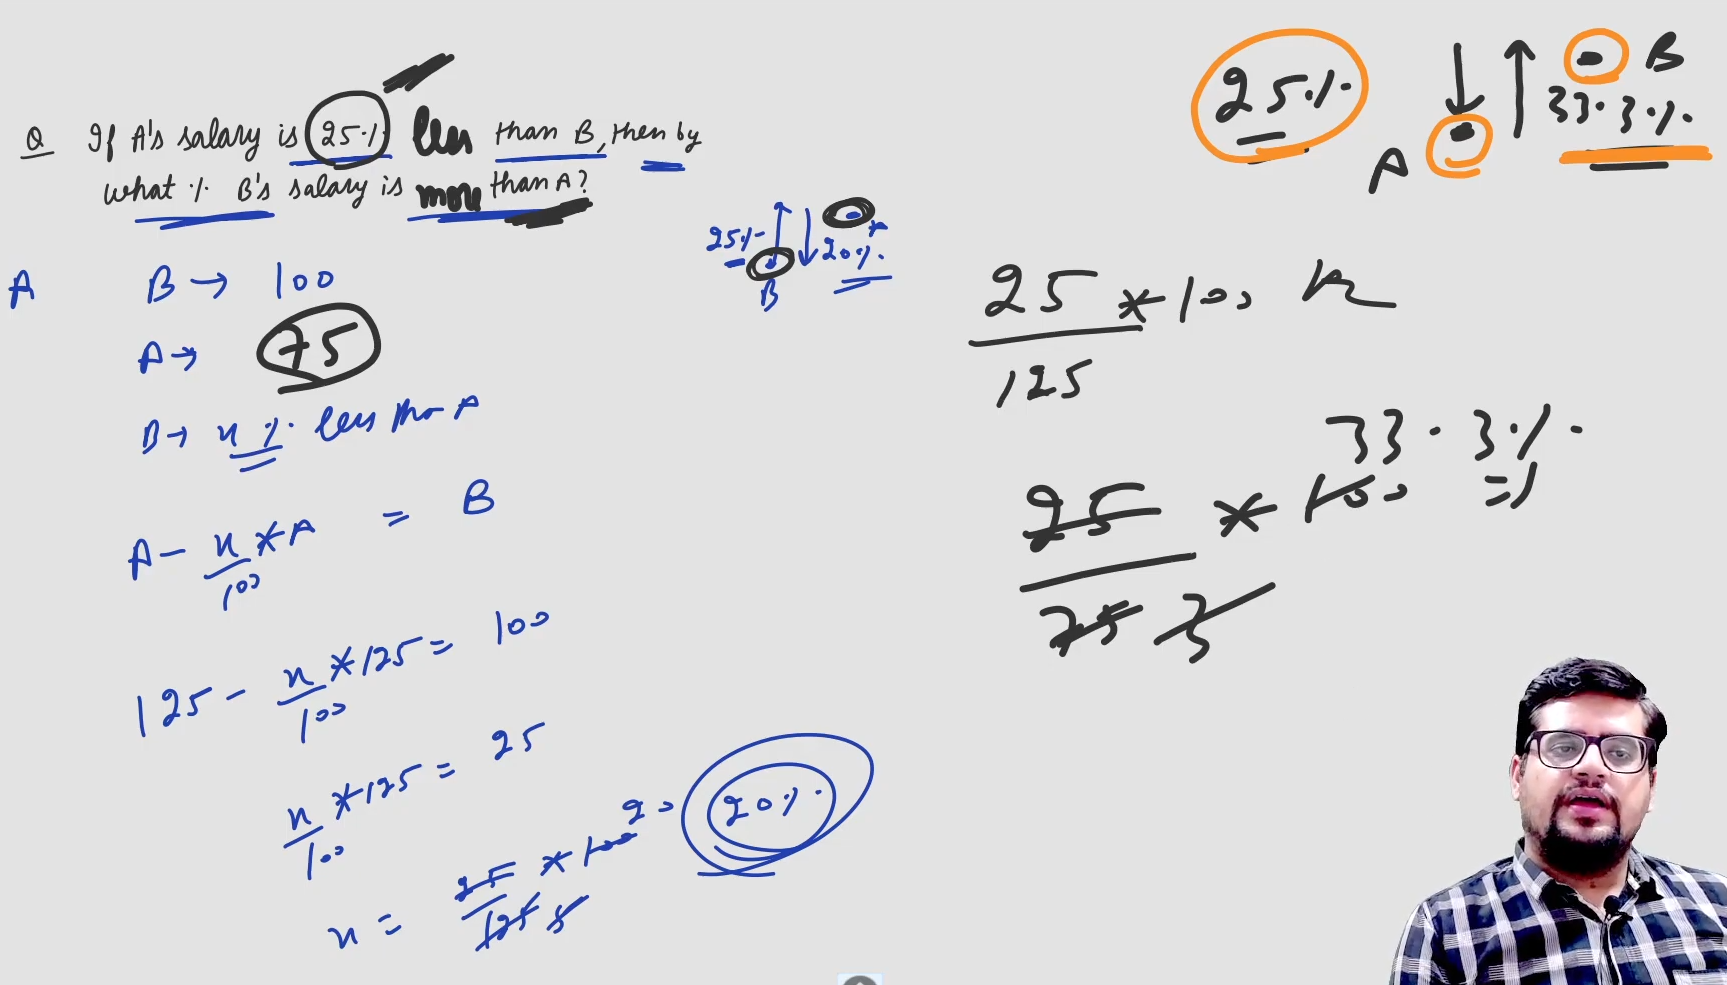 Q If A's salary is 25% less than B, then by
what % B's salary is more than A?
A
B → 100
A → 75
B → x % less than A
A - x/100 * A = B
125 - x/100 * 125 = 100
x/100 * 125 = 25
x = 25/125 5 * 100 20 20%
25% 20%
B A
25% B
33.3%
A
25/125 * 100
33.3%
25/75 3 * 100